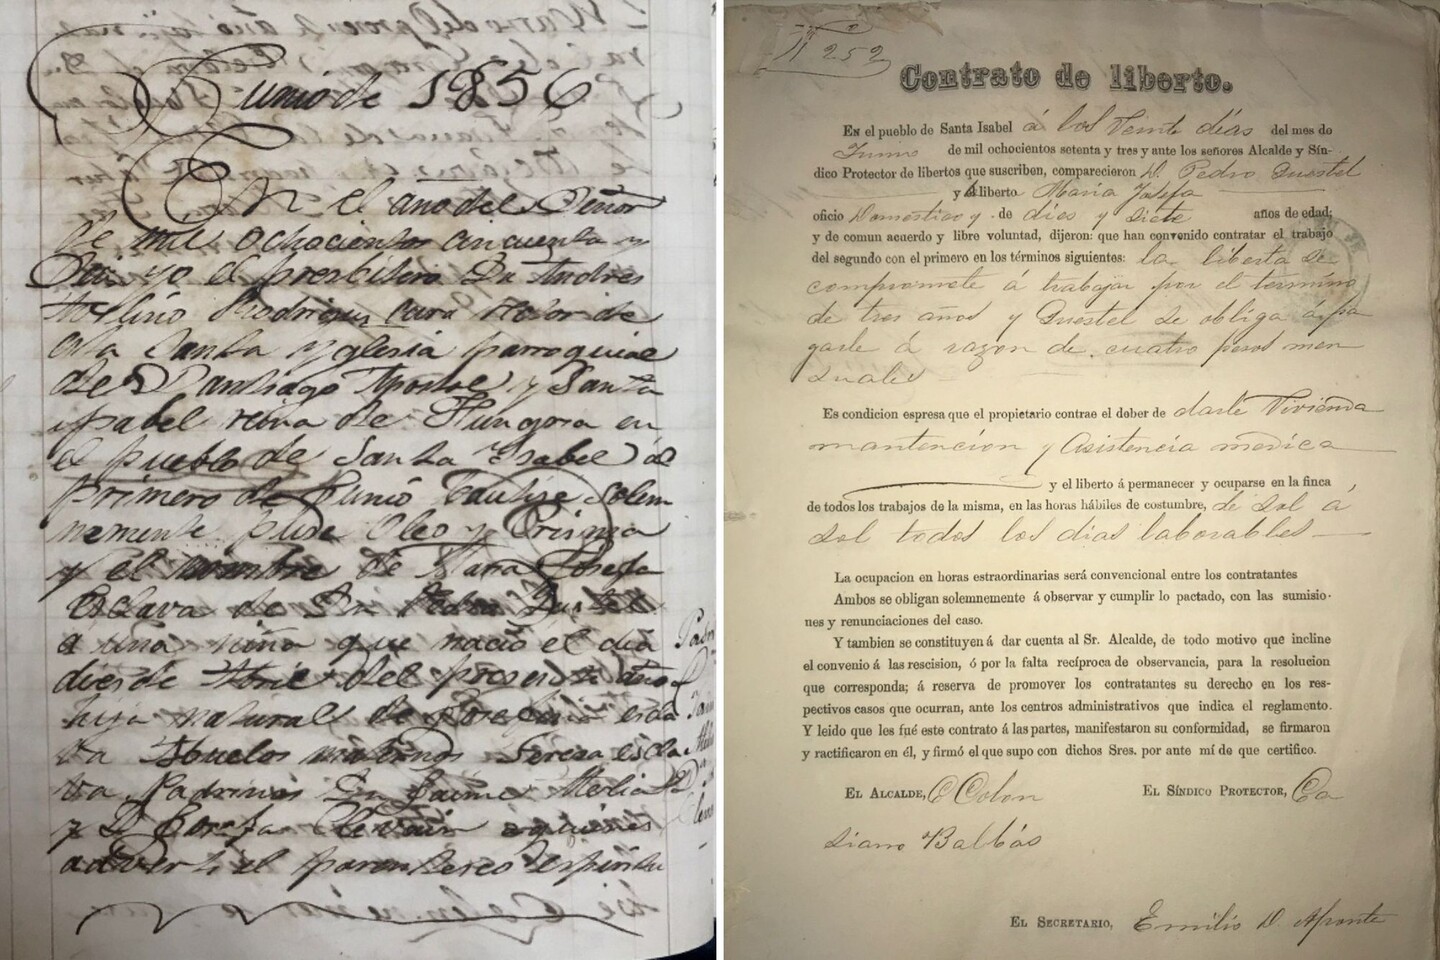 Junio de 1856
En el año del Señor
de mil ochocientos cincuenta y
Seis yo el presbitero Dn Andres
Rodrigues cura Rector de
esta Santa Yglesia parroquial
de Santiago Apostol y Santa
Ysabel reina de Hungria en
el pueblo de Santa Ysabel á
primero de Junio bautise solem
nemente puse Oleo y Crisma
y el nombre de Maria Josefa
Esclava de Dn Pedro Qustel
a una niña que nació el dia
dies de Abril del presente año
hija natural de escla
va Abuelos maternos Teresa escla
va Padrinos Dn Jaime
y Da aquienes
adverti el parentesco espiritu
N 252
Contrato de liberto.
En el pueblo de Santa Isabel á los Veinte dias del mes de
Junio de mil ochocientos setenta y tres y ante los señores Alcalde y Sín-
dico Protector de libertos que suscriben, comparecieron D. Pedro Questel
y liberto Maria Josefa
oficio Domestico y de dies y siete años de edad;
y de comun acuerdo y libre voluntad, dijeron: que han convenido contratar el trabajo
del segundo con el primero en los términos siguientes: la liberta se
compromete á trabajar por el termino
de tres años y Questel se obliga á pa
garle á razon de cuatro pesos men
suales
Es condicion espresa que el propietario contrae el deber de darle Vivienda
mantencion y Asistencia medica
y el liberto á permanecer y ocuparse en la finca
de todos los trabajos de la misma, en las horas hábiles de costumbre, de sol á
sol todos los dias laborables
La ocupacion en horas estraordinarias será convencional entre los contratantes
Ambos se obligan solemnemente á observar y cumplir lo pactado, con las sumisio-
nes y renunciaciones del caso.
Y tambien se constituyen á dar cuenta al Sr. Alcalde, de todo motivo que incline
el convenio á las rescision, ó por la falta recíproca de observancia, para la resolucion
que corresponda; á reserva de promover los contratantes su derecho en los res-
pectivos casos que ocurran, ante los centros administrativos que indica el reglamento.
Y leido que les fué este contrato á las partes, manifestaron su conformidad, se firmaron
y ractificaron en él, y firmó el que supo con dichos Sres. por ante mí de que certifico.
El Alcalde, C Colon El Síndico Protector, Ca
siano Balbás
El Secretario, Emilio D. Aponte